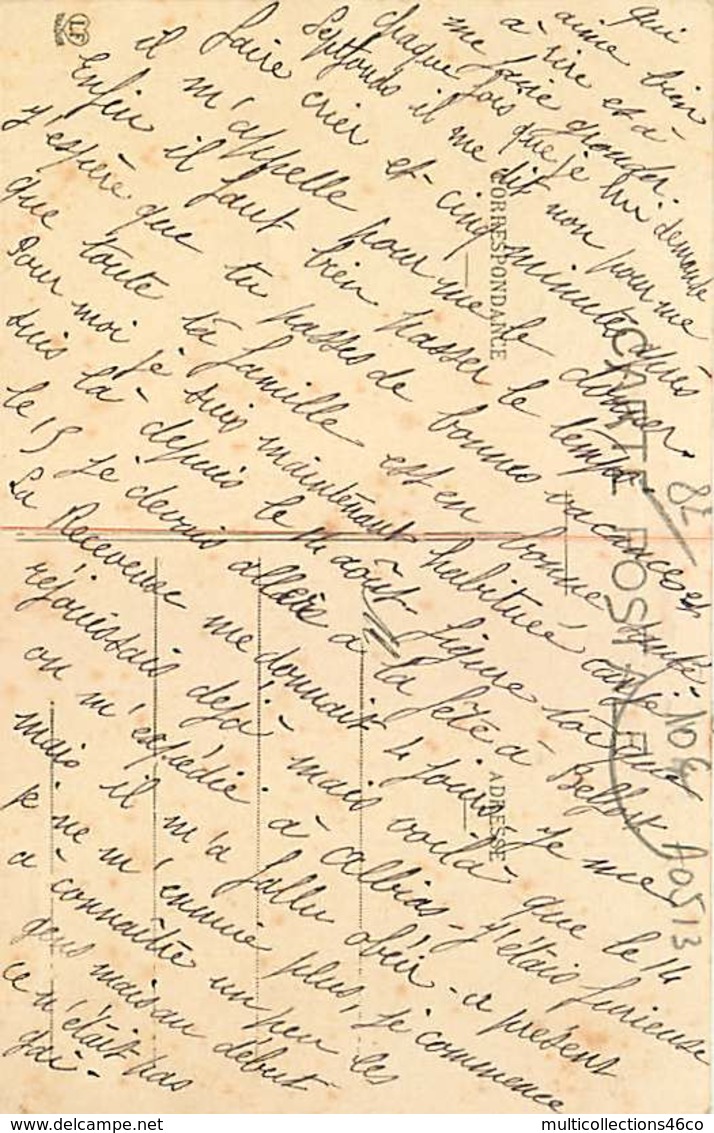 qui
aime bien
à rire et à
me faire gronder.
chaque fois que je lui demande
Septfonds il me dit non pour me
faire crier et cinq minutes après
il m'appelle pour me le donner.
Enfin il faut bien passer le temps.
J'espère que tu passes de bonnes vacances et
que toute ta famille est en bonne santé
Pour moi je suis maintenant habituée car je
suis là depuis le 14 août. Figure toi que
le 15 je devais aller à la fête à Belfort
La Receveuse me donnait 4 jours. Je me
réjouissais déjà mais voilà que le 14
on m'expédie à Albias - J'étais furieuse
mais il m'a fallu obéir - a présent
je ne m'ennuie plus, je commence
a connaître un peu les
gens mais au début
ce n'était pas
gai -
CORRESPONDANCE
CARTE POSTALE
ADRESSE
LF
82
104
A0513
multicollections46co